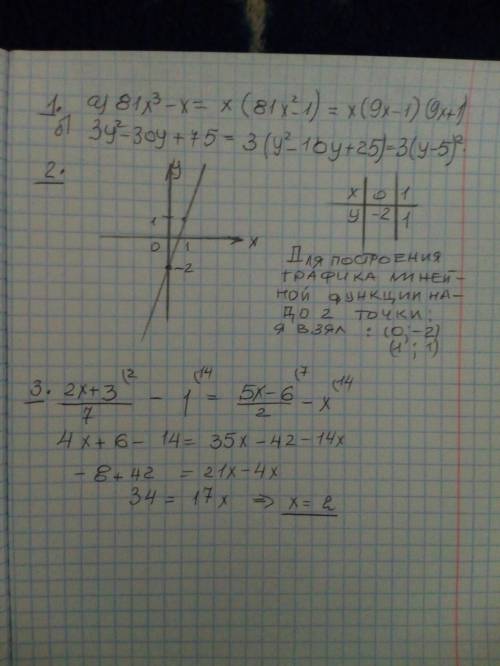 1. а) 81x³ - x = x(81x² - 1) = x(9x - 1)(9x + 1)
б) 3y² - 30y + 75 = 3(y² - 10y + 25) = 3(y - 5)².
2.
y
1
0 1 x
-2
x 0 1
y -2 1
Для построения
графика линей-
ной функции на-
до 2 точки:
я взял : (0; -2)
(1; 1)
3. (2x + 3)/7 (2 - 1 (14 = (5x - 6)/2 (7 - x (14
4x + 6 - 14 = 35x - 42 - 14x
-8 + 42 = 21x - 4x
34 = 17x ⇒ x = 2